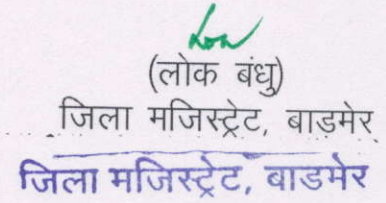 (लोक बंधु)
जिला मजिस्ट्रेट, बाडमेर
जिला मजिस्ट्रेट, बाडमेर